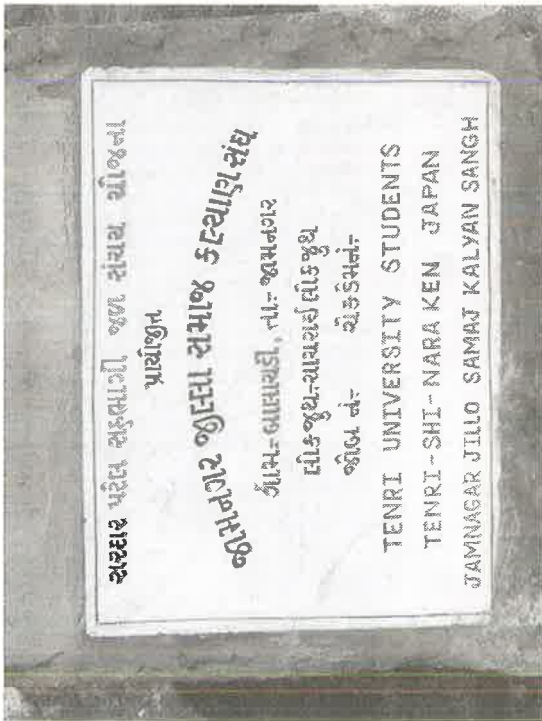 સરદાર પટેલ સહભાગી જળ સંચય યોજના
પ્રાયોજીત
જામનગર જીલ્લા સમાજ કલ્યાણ સંઘ
ગામ:- બાલાચડી, તા:- જામનગર
લોકજુથ:- સાયરાઈ લોકજુથ
જોબ નં:- ચેકડેમનં:-
TENRI UNIVERSITY STUDENTS
TENRI-SHI-NARA KEN JAPAN
JAMNAGAR JILLO SAMAJ KALYAN SANGH